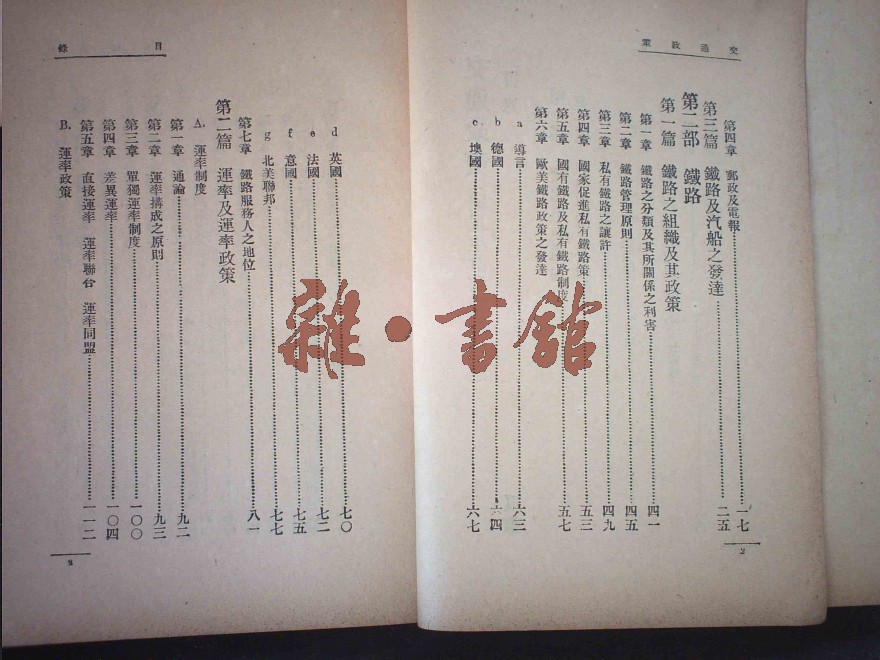 交通政策
第四章 郵政及電報……一七
第三篇 鐵路及汽船之發達……二五
第二部 鐵路
第一篇 鐵路之組織及其政策
第一章 鐵路之分類及其所關係之利害……四一
第二章 鐵路管理原則……四五
第三章 私有鐵路之讓許……四九
第四章 國家促進私有鐵路策……五三
第五章 國有鐵路及私有鐵路制度……五七
第六章 歐美鐵路政策之發達
a 導言……六三
b 德國……六四
c 墺國……六七
2
目錄
d 英國……七〇
e 法國……七二
f 意國……七五
g 北美聯邦……七七
第七章 鐵路服務人之地位……八一
第二篇 運率及運率政策
A. 運率制度
第一章 通論……九二
第二章 運率搆成之原則……九三
第三章 單獨運率制度……一〇〇
第四章 差異運率……一〇四
第五章 直接運率 運率聯合 運率同盟……一一二
B. 運率政策
3
雜·書館